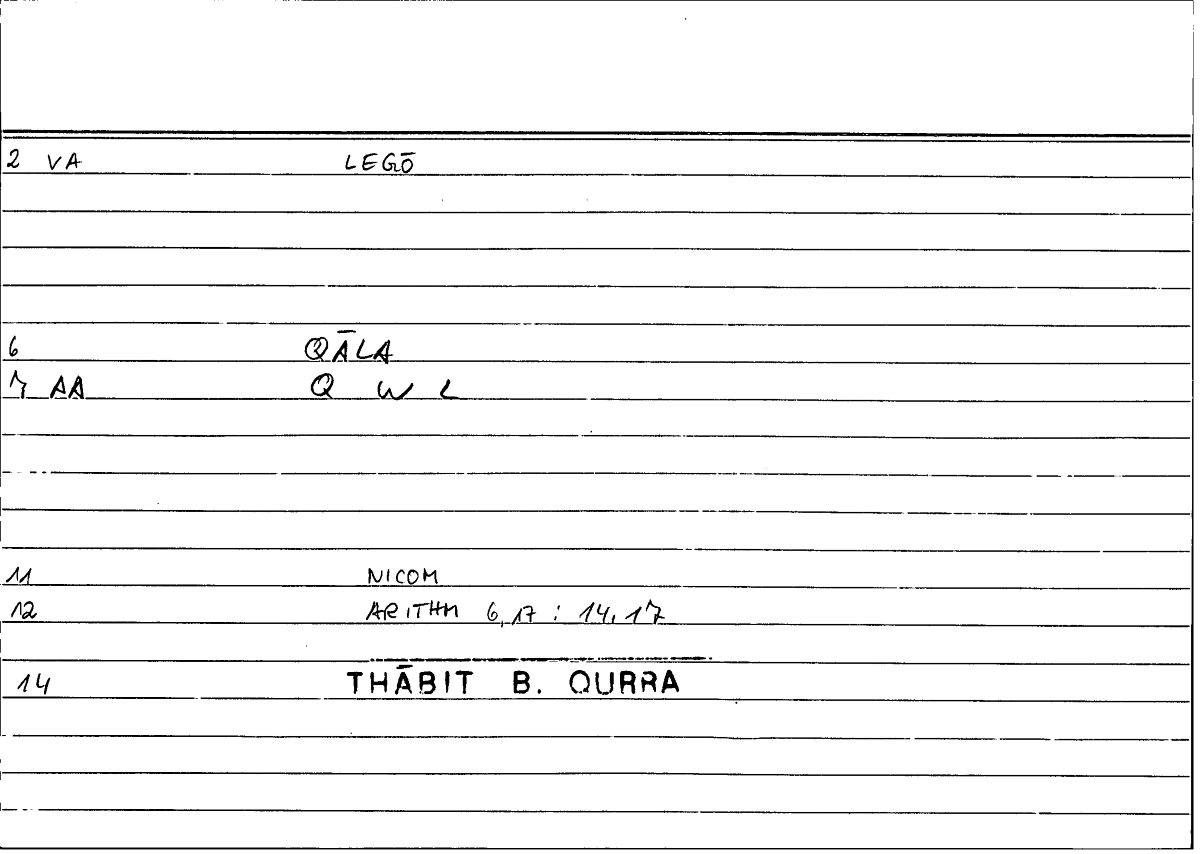 2 VA LEGŌ
6 QĀLA
7 AA Q W L
11 NICOM
12 ARITHM 6,17 : 14,17
14 THĀBIT B. QURRA